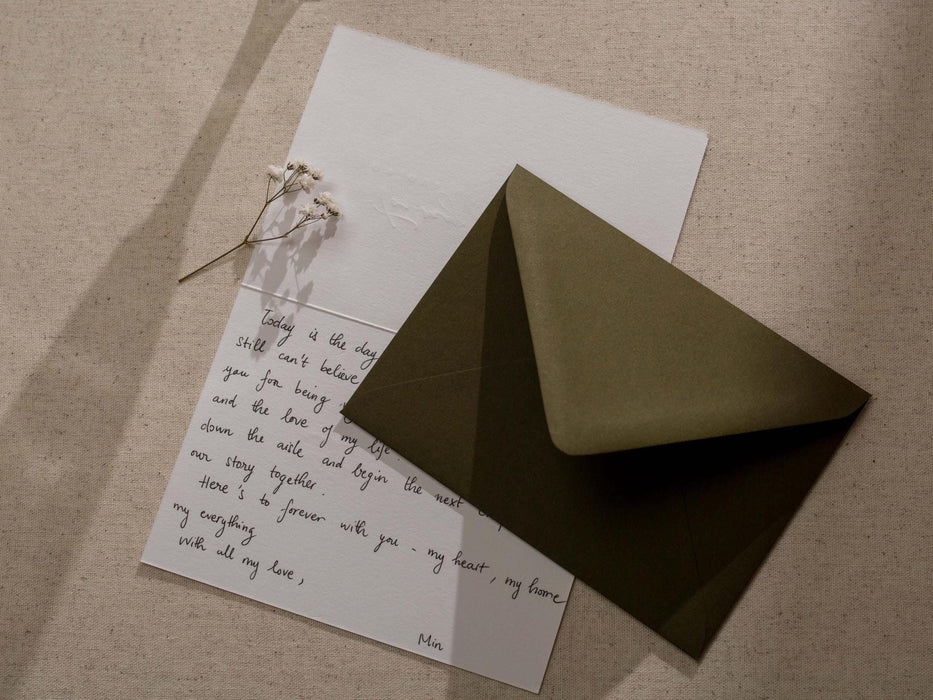 Today is the day
still can't believe
you for being
and the love of my life.
down the aisle and begin the next
our story together.
Here's to forever with you - my heart, my home
my everything
With all my love,
Min